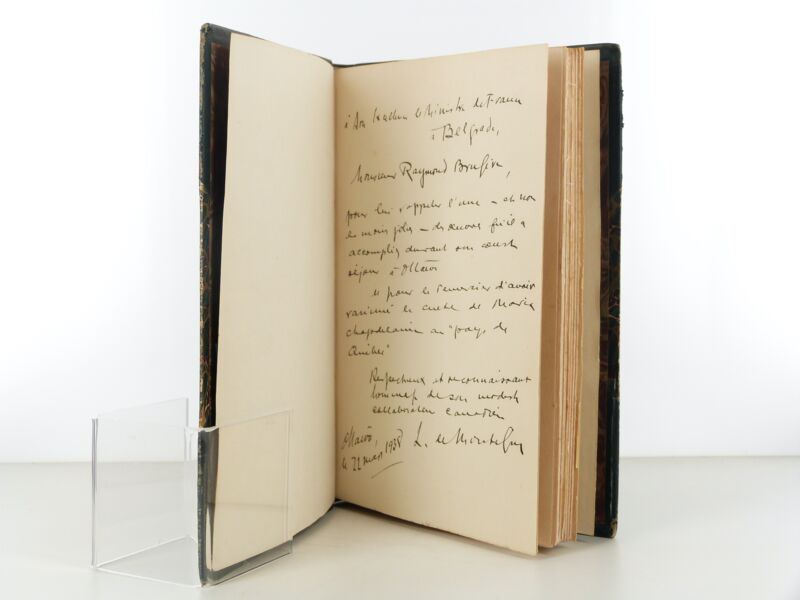 à Son Excellence le Ministre de France
à Belgrade,
Monsieur Raymond Brugère,
pour lui rappeler l'une – et non
la moins jolie – des œuvres qu'il a
accomplies durant son court
séjour à Ottawa
et pour le remercier d'avoir
ranimé le culte de Maria
Chapdelaine au "pays de
Québec"
Respectueux et reconnaissant
hommage de son modeste
collaborateur canadien
Ottawa,
le 22 mars 1938 L. de Montigny